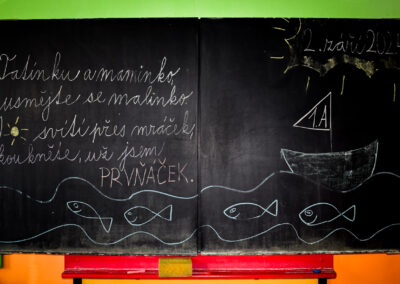 Tatínku a maminko,
usmějte se malinko.
I svítí přes mráček,
koukněte, už jsem
PRVŇÁČEK.
2. září 2024
1A